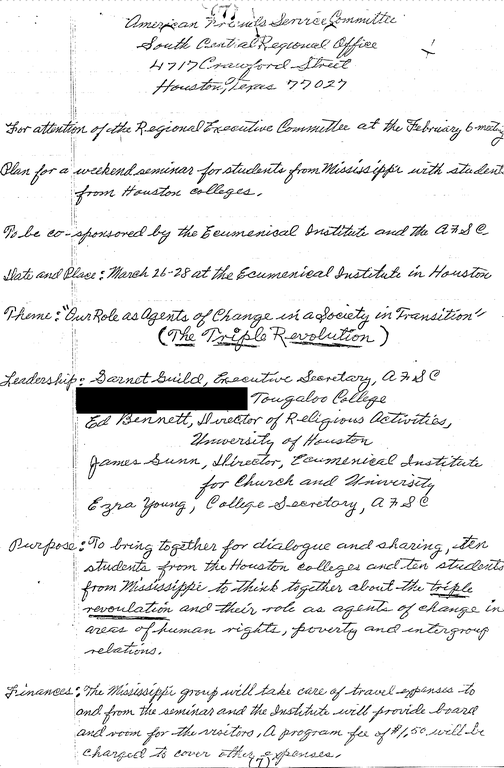 (7)
American Friends Service Committee
South Central Regional Office
4717 Crawford Street
Houston, Texas 77027
For attention of the Regional Executive Committee at the February 6 meeting
Plan for a weekend seminar for students from Mississippi with student
from Houston colleges.
To be co-sponsored by the Ecumenical Institute and the AFSC
Date and Place: March 26-28 at the Ecumenical Institute in Houston
Theme: "Our Role as Agents of Change in a Society in Transition"
(The Triple Revolution)
Leadership: Garnet Guild, Executive Secretary, AFSC
Tougaloo College
Ed Bennett, Director of Religious Activities,
University of Houston
James Gunn, Director, Ecumenical Institute
for Church and University
Ezra Young, College Secretary, AFSC
Purpose: To bring together for dialogue and sharing, ten
students from the Houston colleges and ten students
from Mississippi to think together about the triple
revoulation and their role as agents of change in
areas of human rights, poverty and intergroup
relations.
Finances: The Mississippi group will take care of travel expenses to
and from the seminar and the Institute will provide board
and room for the visitors. A program fee of $1.50 will be
charged to cover other expenses.
(7)